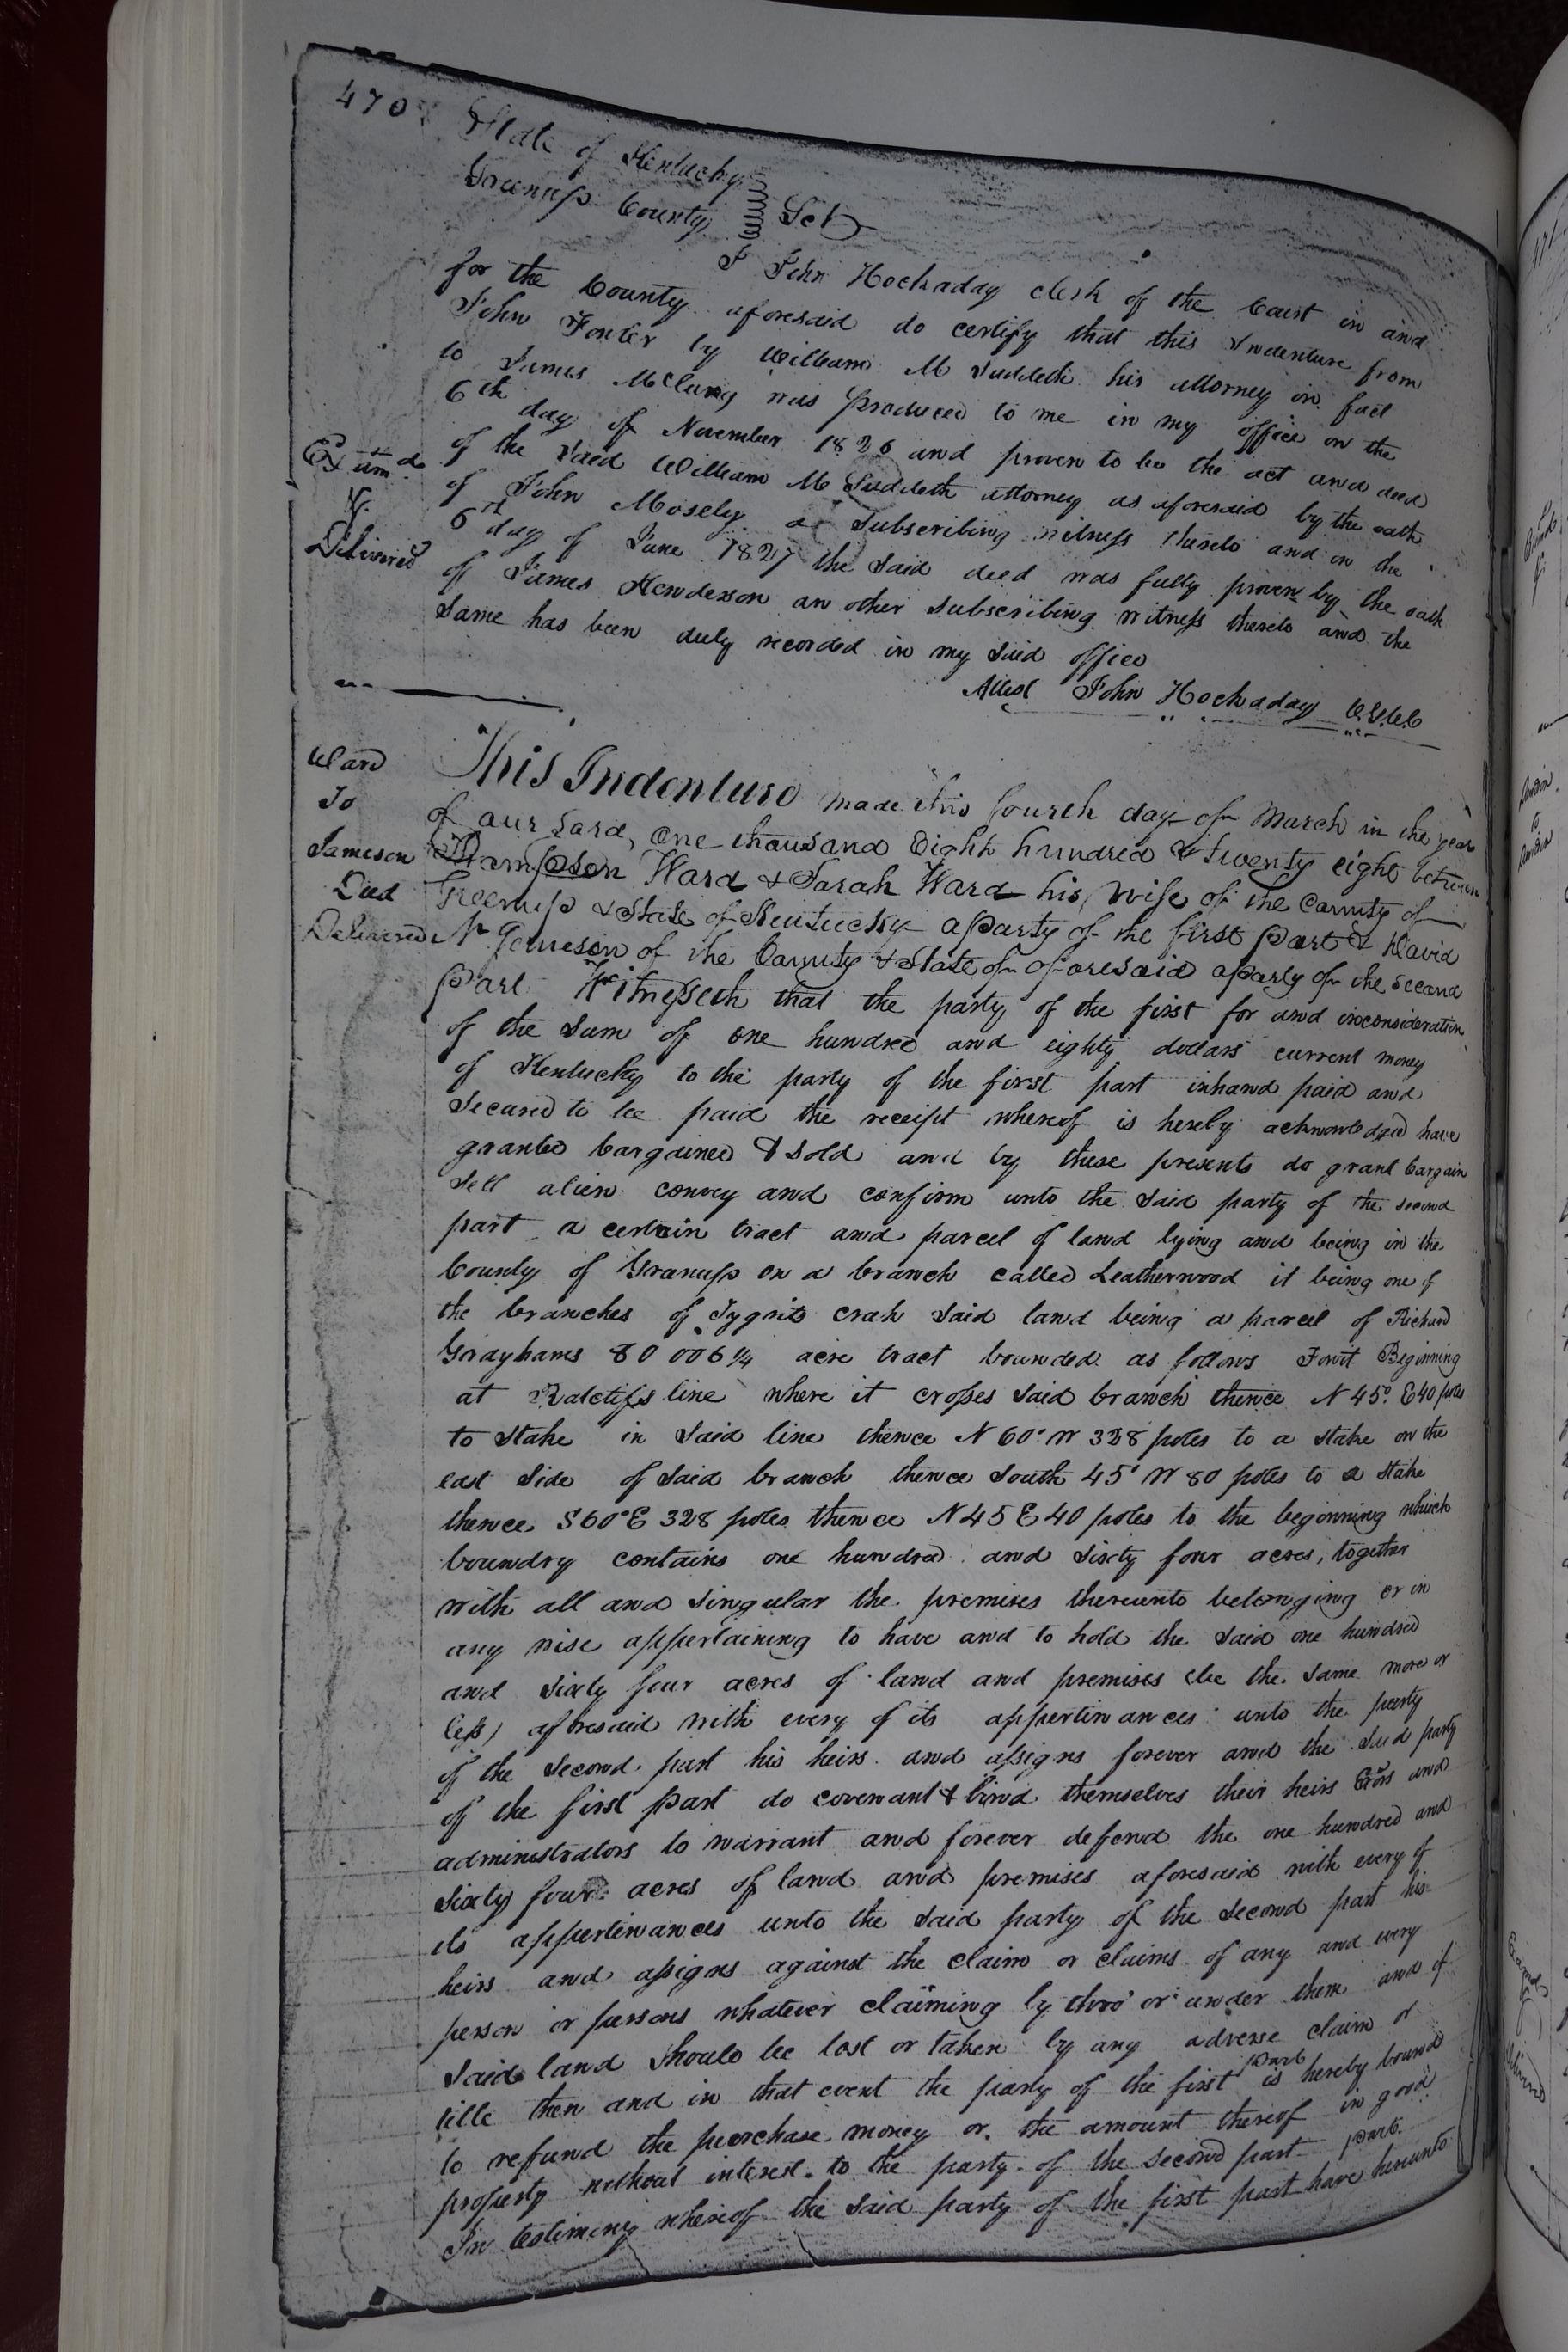 470
State of Kentucky
Greenup County Sct
I John Hockaday clerk of the Court in and
for the County aforesaid do certify that this Indenture from
John Fowler by William M Suddeth his attorney in fact
to James McClung was produced to me in my office on the
6th day of November 1826 and proven to be the act and deed
of the said William M Suddeth attorney as aforesaid by the oath
of John Mosely a subscribing witness thereto and on the
6th day of June 1827 the said deed was fully proven by the oath
of James Henderson an other subscribing witness thereto and the
same has been duly recorded in my said office
Attest John Hockaday C.G.C.C
Examd
&
Delivered
Ward
To
Jameson
Deed
Delivered
This Indenture made this fourth day of March in the year
of our Lord, one thousand Eight hundred & twenty eight between
Thompson Ward & Sarah Ward his wife of the County of
Greenup & State of Kentucky a party of the first part & David
Jameson of the County & State of aforesaid a party of the second
part Witnesseth that the party of the first for and inconsideration
of the sum of one hundred and eighty dollars current money
of Kentucky to the party of the first part inhand paid and
secured to be paid the receipt whereof is hereby acknowledged have
granted bargained & sold and by these presents do grant bargain
sell alien convey and confirm unto the said party of the second
part a certain tract and parcel of land lying and being in the
County of Greenup on a branch called Leatherwood it being one of
the branches of Tygrits crak said land being a parcel of Richard
Grayhams 80 006 1/4 acre tract bounded as follows Towit Beginning
at Ratcliffs line where it crosses said branch thence N 45° E 40 poles
to stake in said line thence N 60° W 328 poles to a stake on the
east side of said branch thence South 45° W 80 poles to a stake
thence S 60° E 328 poles thence N 45 E 40 poles to the beginning which
boundry contains one hundred and sixty four acres, together
with all and singular the premises thereunto belonging or in
any wise appertaining to have and to hold the said one hundred
and sixty four acres of land and premises (be the same more or
less) aforesaid with every of its appertinances unto the party
of the second part his heirs and assigns forever and the said party
of the first part do covenant & bind themselves their heirs Exors and
administrators to warrant and forever defend the one hundred and
sixty four acres of land and premises aforesaid with every of
its appertinances unto the said party of the second part his
heirs and assigns against the claim or claims of any and every
person or persons whatever claiming by thro' or under them and if
said land should be lost or taken by any adverse claim or
title then and in that event the party of the first part is hereby bound
to refund the purchase money or the amount thereof in good
property without interest to the party of the second part part.
In testimony whereof the said party of the first part have hereunto